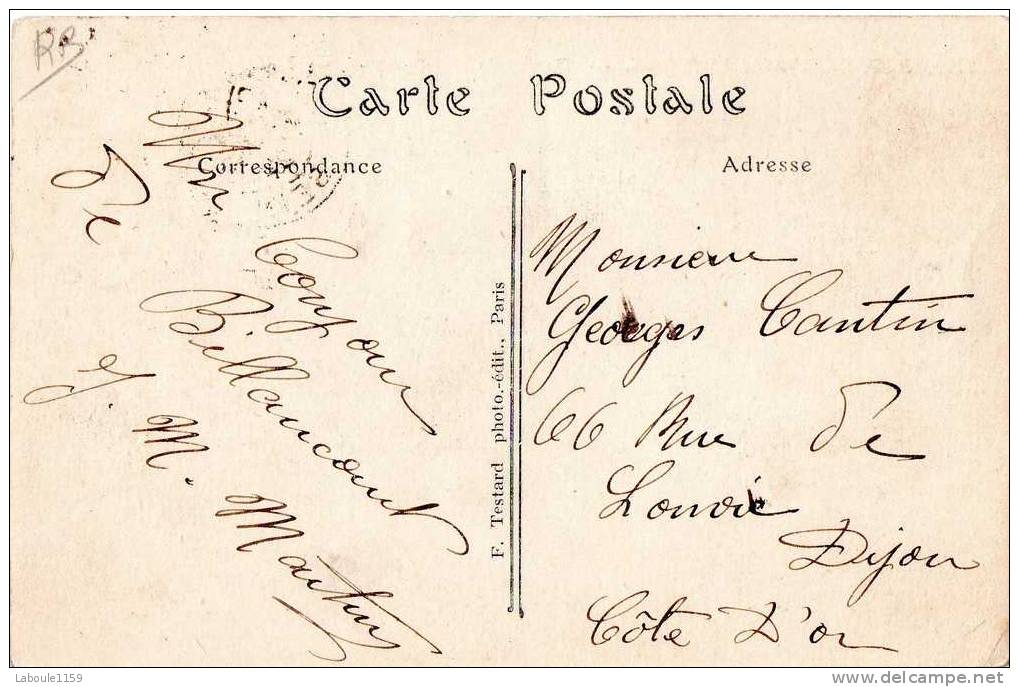 RB
Carte Postale
Correspondance
Adresse
Un
Bonjour
De
Billancourt
J. M. Martin
F. Testard photo.-édit., Paris
Monsieur
Georges Cantin
66 Rue de
Longvic
Dijon
Côte D'or
Laboule1159
www.delcampe.net